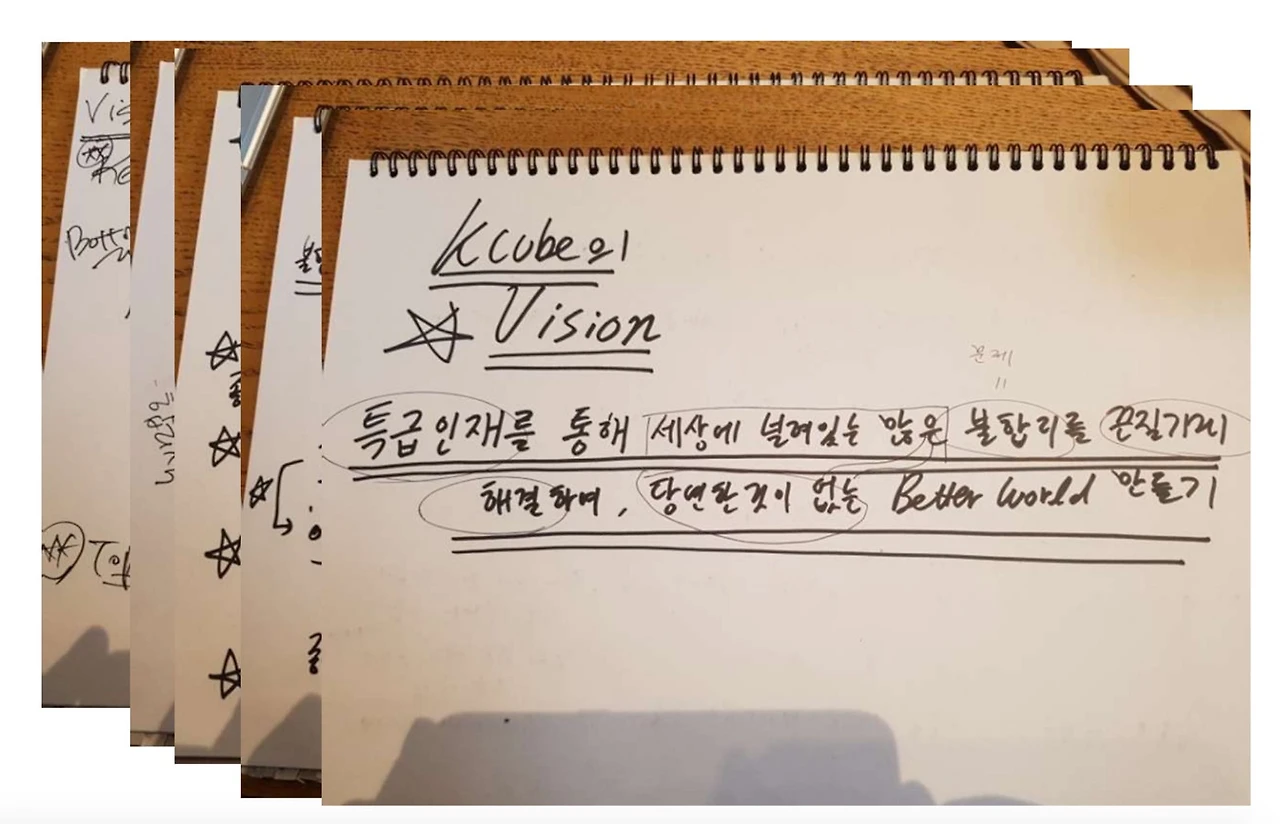 Vis
Botto
Kcube의
Vision
문제
특급인재를 통해 세상에 널려있는 많은 불합리를 끈질기게
해결하며, 당연한것이 없는 Better World 만들기